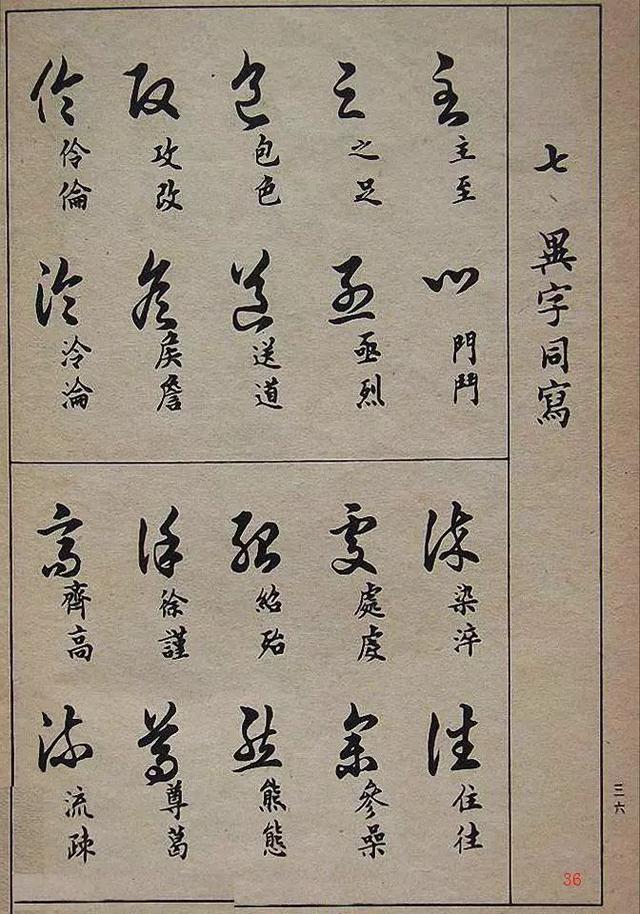 七、異字同寫
主至
門鬥
之足
亟烈
包色
送道
攻改
矦詹
伶倫
泠淪
染淬
住往
處虔
參喿
紹殆
熊態
徐謹
尊葛
齊高
流疎
三六
36